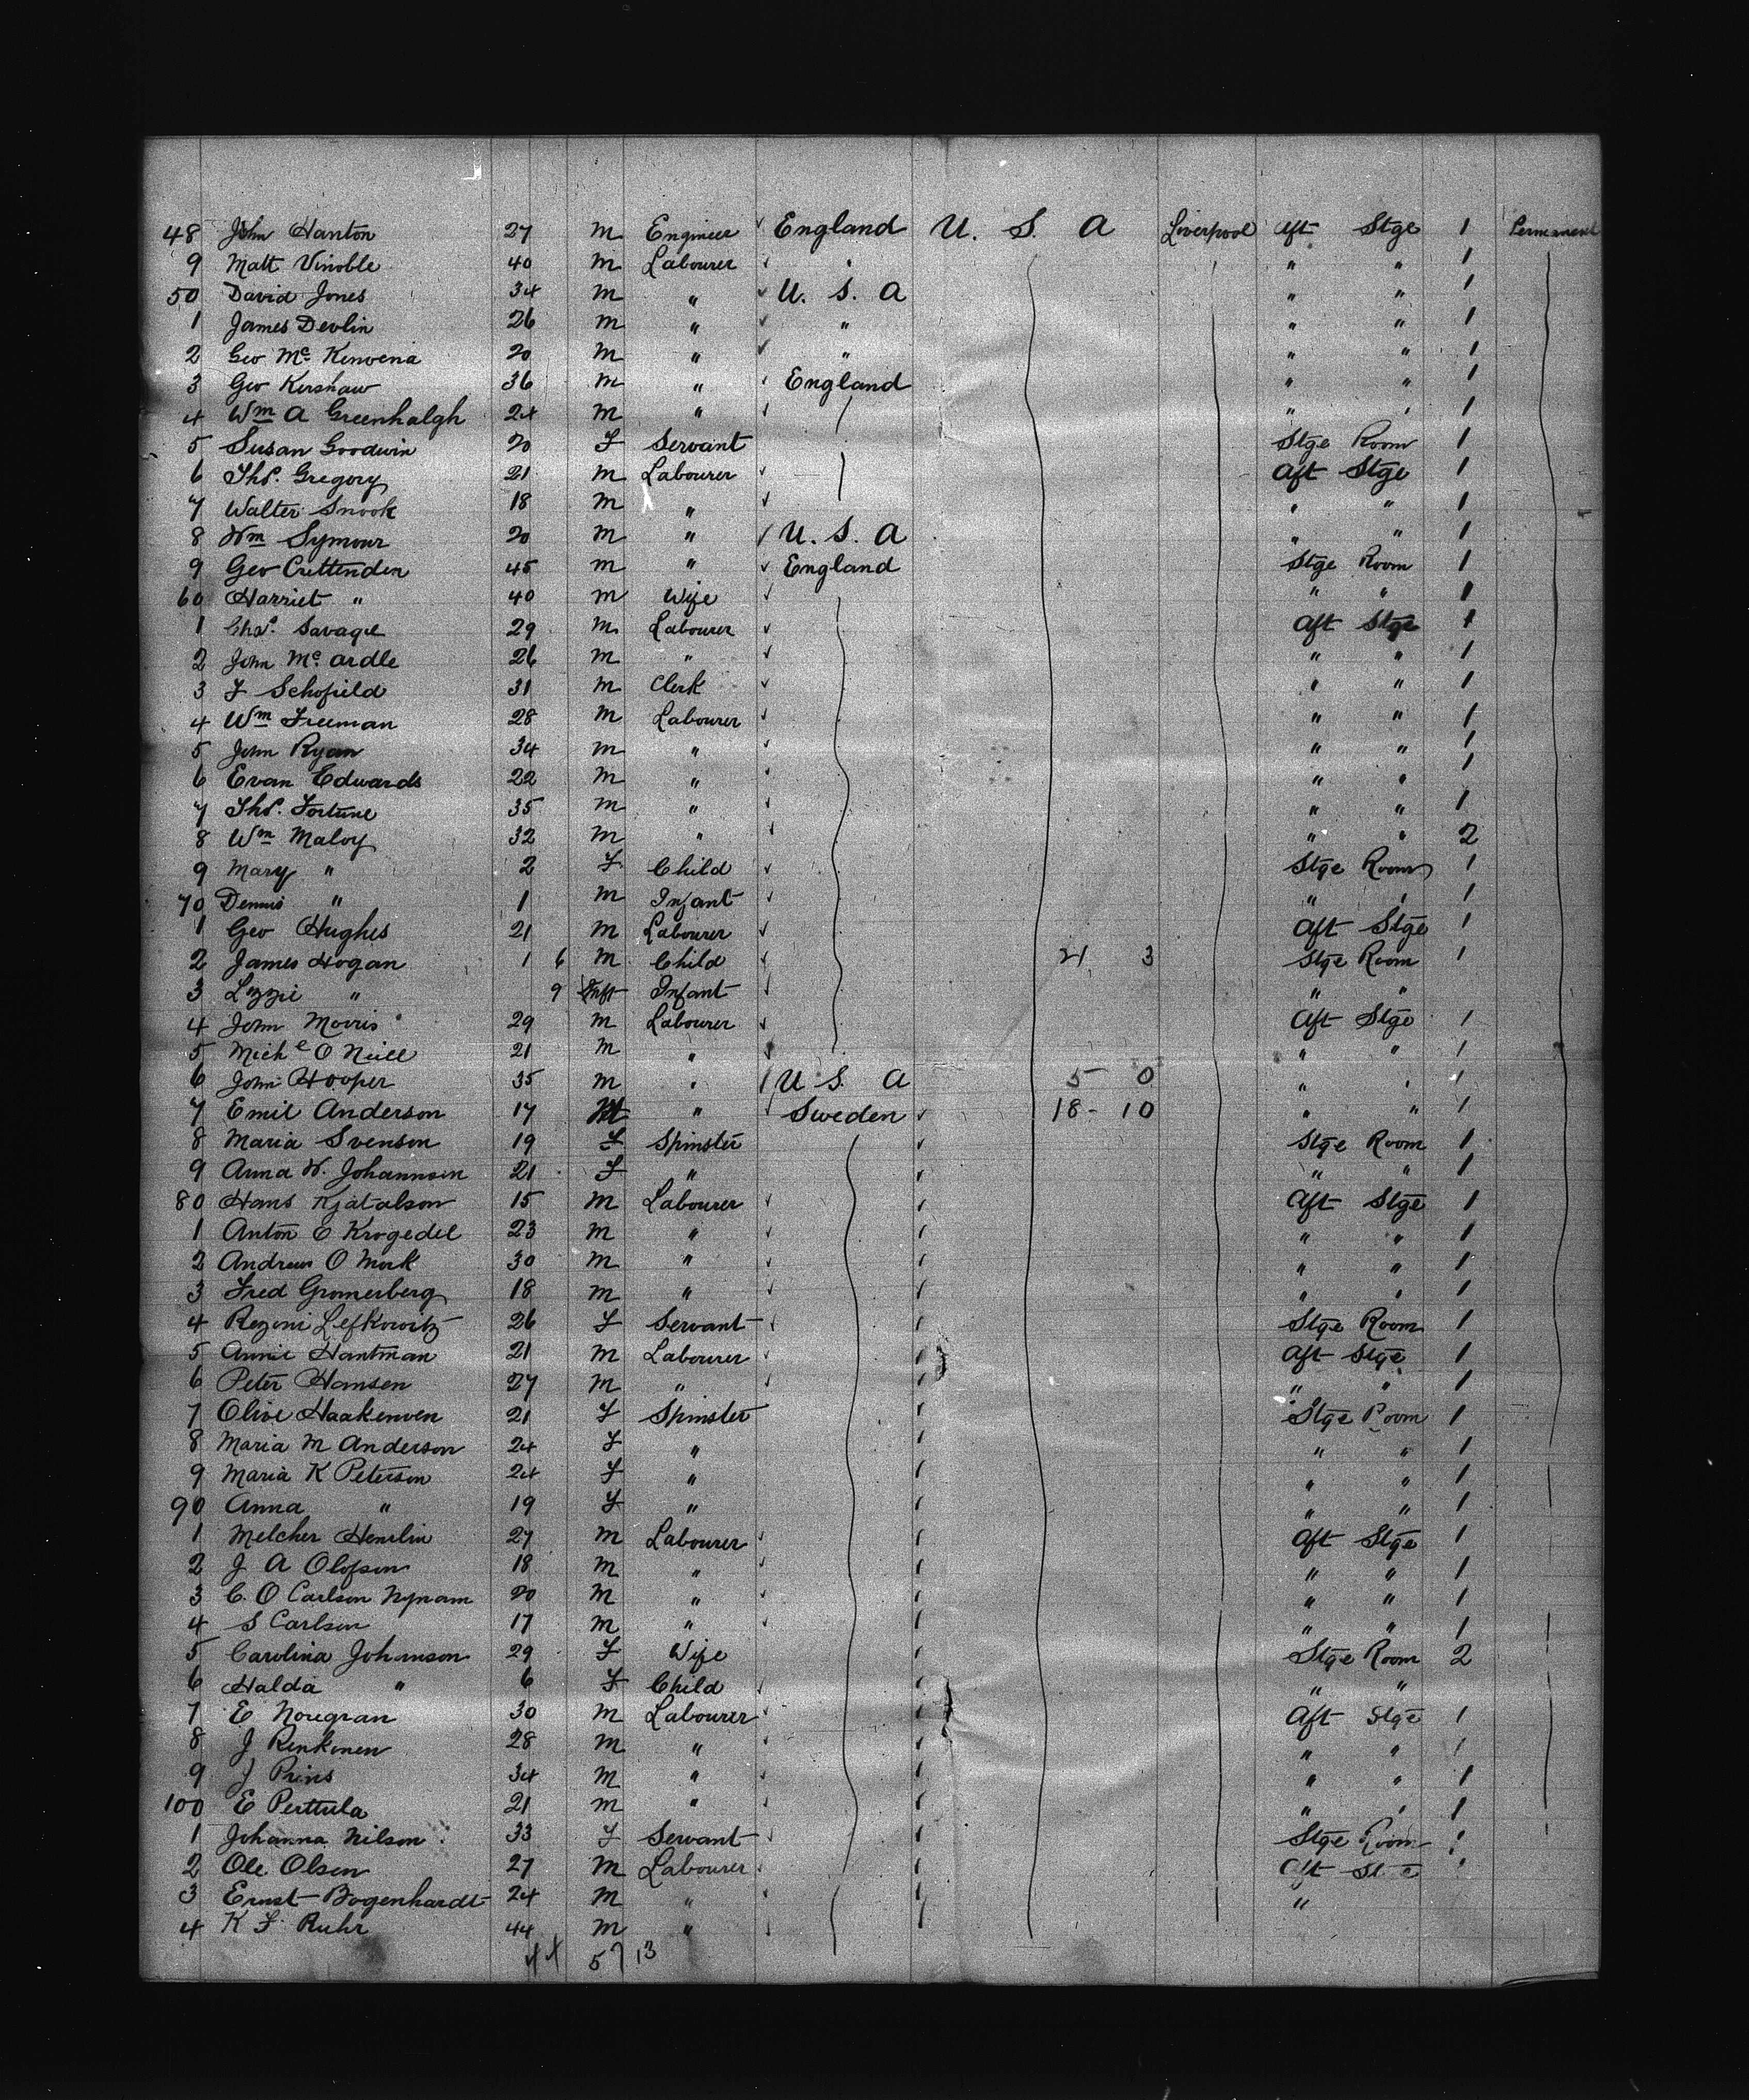 48 John Hanton 27 M Engineer England U. S. A Liverpool Aft Stge 1 Permanent
9 Matt Vinoble 40 M Labourer " " " 1
50 David Jones 34 M " U. S. A " " 1
1 James Devlin 26 M " " " " 1
2 Geo Mc Kenvena 20 M " " " " 1
3 Geo Kershaw 36 M " England " " 1
4 Wm A Greenhalgh 24 M " " " 1
5 Susan Goodwin 20 F Servant Stge Room 1
6 Thos. Gregory 21 M Labourer Aft Stge 1
7 Walter Snook 18 M " " " 1
8 Wm Symour 20 M " U. S. A " " 1
9 Geo Cruttenden 45 M " England Stge Room 1
60 Harriet " 40 M Wife " " 1
1 Chas. Savage 29 M Labourer Aft Stge 1
2 John Mc ardle 26 M " " " 1
3 F Schofield 31 M Clerk " " 1
4 Wm Freeman 28 M Labourer " " 1
5 John Ryan 34 M " " " 1
6 Evan Edwards 22 M " " " 1
7 Thos. Fortune 35 M " " " 1
8 Wm Maloy 32 M " " " 2
9 Mary " 2 F Child Stge Room 1
70 Dennis " 1 M Infant " " 1
1 Geo Hughes 21 M Labourer Aft Stge 1
2 James Hogan 1 6 M Child 21 3 Stge Room 1
3 Lizzie " 9 Infant " "
4 John Morris 29 M Labourer Aft Stge 1
5 Miche O Neill 21 M " " " 1
6 John Hooper 35 M " U S. A 5 0 " " 1
7 Emil Anderson 17 M " Sweden 18 - 10 " " 1
8 Maria Svenson 19 F Spinster Stge Room 1
9 Anna W. Johannsen 21 F " " " 1
80 Hans Kjatalson 15 M Labourer Aft Stge 1
1 Anton E Krogedel 23 M " " " 1
2 Andrew O Mork 30 M " " " 1
3 Fred Gronerberg 18 M " " " 1
4 Rezoni Lefkowitz 26 F Servant Stge Room 1
5 Annie Hantman 21 M Labourer Aft Stge 1
6 Peter Hansen 27 M " " " 1
7 Olive Haakenven 21 F Spinster Stge Room 1
8 Maria M Anderson 24 F " " " 1
9 Maria K Peterson 24 F " " " 1
90 Anna " 19 F " " " 1
1 Melcher Henrlin 27 M Labourer Aft Stge 1
2 J A Olofson 18 M " " " 1
3 C. O Carlson Nynam 20 M " " " 1
4 S Carlson 17 M " " " 1
5 Carolina Johanson 29 F Wife Stge Room 2
6 Halda " 6 F Child " "
7 E Noregran 30 M Labourer Aft Stge 1
8 J Renkonen 28 M " " " 1
9 J Prins 34 M " " " 1
100 E Perttula 21 M " " " 1
1 Johanna Nilson 33 F Servant Stge Room 1
2 Ole Olsen 27 M Labourer Aft Stge 1
3 Ernst Bogenhardt 24 M " "
4 K F. Ruhr 44 M "
44 57 13